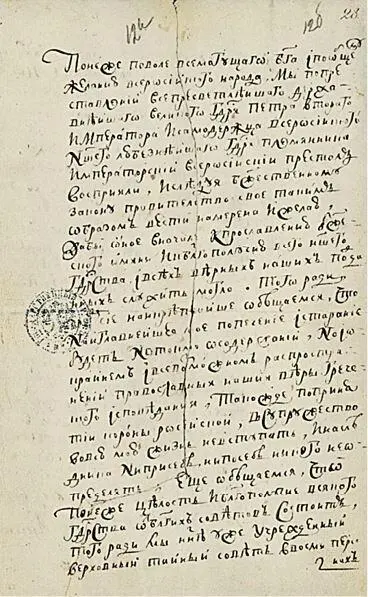 12б 12б 23
Понеже поволе всемогущаго бга ипообщему
желанию всеросійского народа, мы попре
ставлениі всепресветлейшаго держа
внейшаго великого гдря Петра второго
императора исамодержца всеросійского
ншего любезнейшаго гдря племянника
императорский всеросійский престолъ
восприяли, иследуя бжественному
закону правителство свое такимъ
образомъ вести намерена ижелаю,
дабы оное вначале кпрославлению бже
ского имяни икблагополучию всего ншего
гдрства ивсехъ верныхъ нашихъ подда
нныхъ служить могло. Того ради
сие наикрепчайше обещаемся, что
наиглавнейшее мое попечение истарание
будетъ нетокмо осодержаниі, ноіо
крайнемъ івсевозможномъ распростра
нениі православныя нашия веры грече
ского ісповедания, такожде попринят
тиі короны росийской, всупружество
вовсю мою жизнь невступать, инасле
дника ниприсебе, нипосебе никого нео
пределять, еще обещаемся, что
понеже целость иблагополучие всякого
гдрства отблагихъ советовъ состоитъ,
того ради мы ныне уже учрежденный
верховный тайный советъ восми пер
сонахъ